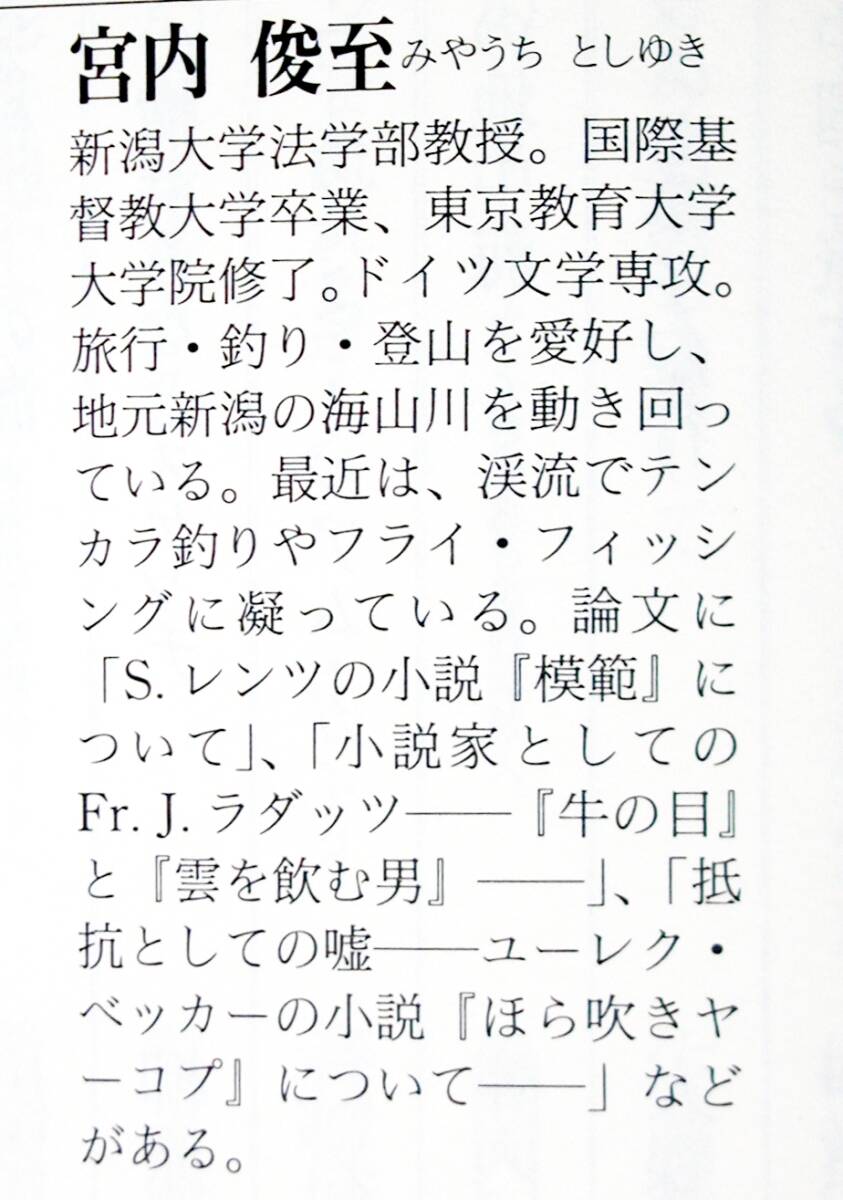 宮内 俊至 みやうち としゆき
新潟大学法学部教授。国際基
督教大学卒業、東京教育大学
大学院修了。ドイツ文学専攻。
旅行・釣り・登山を愛好し、
地元新潟の海山川を動き回っ
ている。最近は、渓流でテン
カラ釣りやフライ・フィッシ
ングに凝っている。論文に
「S. レンツの小説『模範』に
ついて」、「小説家としての
Fr. J. ラダッツ――『牛の目』
と『雲を飲む男』――」、「抵
抗としての嘘――ユーレク・
ベッカーの小説『ほら吹きヤ
ーコプ』について――」など
がある。